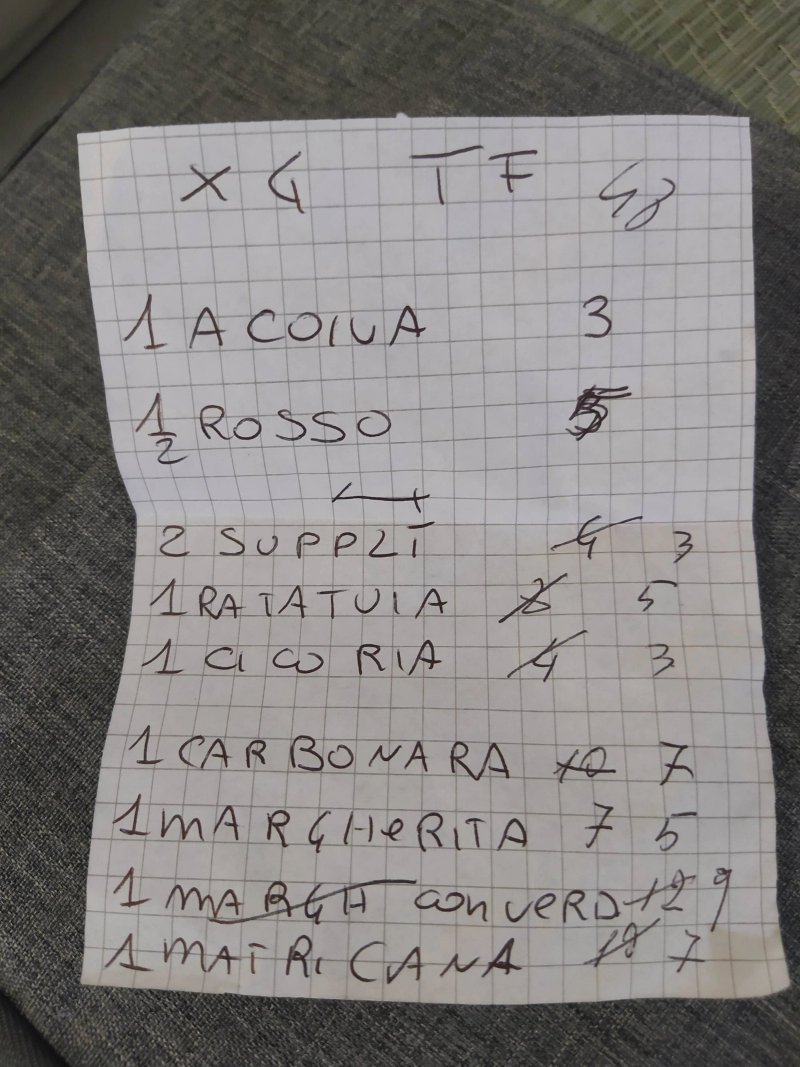 X 4 TF 48
1 ACQUA 3
1/2 ROSSO 5
2 SUPPLÌ 4 3
1 RATATUIA 8 5
1 CICORIA 4 3
1 CARBONARA 10 7
1 MARGHERITA 7 5
1 MARGH CON VERD 12 9
1 MATRICANA 10 7